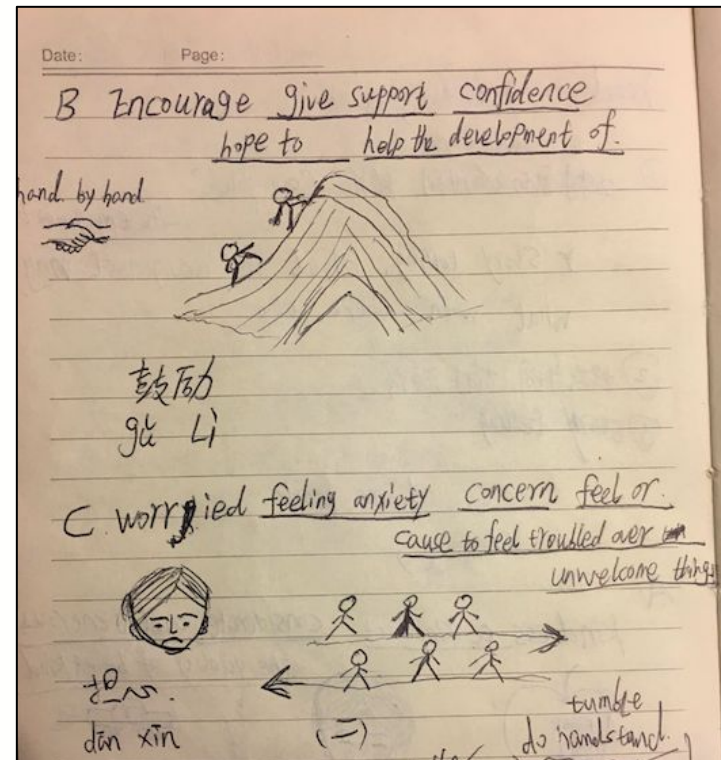 Date: Page:
B Encourage give support confidence
hope to help the development of.
hand by hand
鼓励
gǔ Lì
C worried feeling anxiety concern feel or
cause to feel troubled over
unwelcome things
担心
dān xīn
(二)
tumble
do handstand.